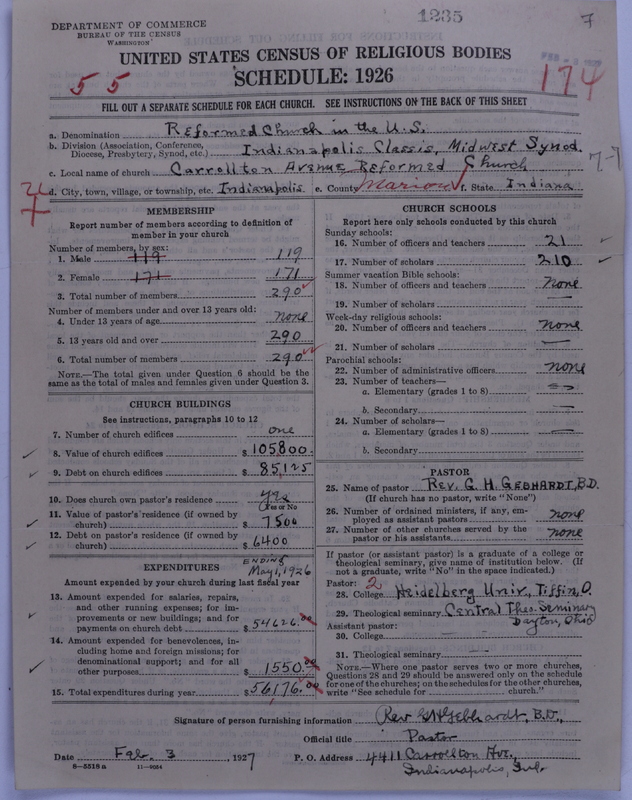 1235
7
DEPARTMENT OF COMMERCE
BUREAU OF THE CENSUS
WASHINGTON
UNITED STATES CENSUS OF RELIGIOUS BODIES
SCHEDULE: 1926
55
174
FILL OUT A SEPARATE SCHEDULE FOR EACH CHURCH. SEE INSTRUCTIONS ON THE BACK OF THIS SHEET
a. Denomination Reformed Church in the U.S.
b. Division (Association, Conference,
Diocese, Presbytery, Synod, etc.) Indianapolis Classis, Midwest Synod.
c. Local name of church Carrollton Avenue Reformed Church
7-7
d. City, town, village, or township, etc. Indianapolis e. County Marion f. State Indiana
MEMBERSHIP
Report number of members according to definition of
member in your church
Number of members, by sex:
1. Male 119 119
2. Female 171 171
3. Total number of members 290
Number of members under and over 13 years old:
4. Under 13 years of age none
5. 13 years old and over 290
6. Total number of members 290
NOTE.—The total given under Question 6 should be the
same as the total of males and females given under Question 3.
CHURCH BUILDINGS
See instructions, paragraphs 10 to 12
7. Number of church edifices one
8. Value of church edifices $ 105800.
9. Debt on church edifices $ 85,125
10. Does church own pastor's residence yes
Yes or No
11. Value of pastor's residence (if owned by
church) $ 7500
12. Debt on pastor's residence (if owned by
church) $ 6400
EXPENDITURES ENDING
May 1, 1926
Amount expended by your church during last fiscal year
13. Amount expended for salaries, repairs,
and other running expenses; for im-
provements or new buildings; and for
payments on church debt $ 54626.00
14. Amount expended for benevolences, in-
cluding home and foreign missions; for
denominational support; and for all
other purposes $ 1550.00
15. Total expenditures during year $ 56,176.00
CHURCH SCHOOLS
Report here only schools conducted by this church
Sunday schools:
16. Number of officers and teachers 21
17. Number of scholars 210
Summer vacation Bible schools:
18. Number of officers and teachers none
19. Number of scholars —
Week-day religious schools:
20. Number of officers and teachers none
21. Number of scholars —
Parochial schools:
22. Number of administrative officers none
23. Number of teachers—
a. Elementary (grades 1 to 8) —
b. Secondary —
24. Number of scholars—
a. Elementary (grades 1 to 8) —
b. Secondary
PASTOR
25. Name of pastor REV. G. H. GEBHARDT, B.D.
(If church has no pastor, write "None")
26. Number of ordained ministers, if any, em-
ployed as assistant pastors none
27. Number of other churches served by the
pastor or his assistants none
If pastor (or assistant pastor) is a graduate of a college or
theological seminary, give name of institution below. (If
not a graduate, write "No" in the space indicated.)
Pastor: 2
28. College Heidelberg Univ., Tiffin, O.
29. Theological seminary Central Theo. Seminary
Dayton, Ohio
Assistant pastor:
30. College
31. Theological seminary —
NOTE.—Where one pastor serves two or more churches,
Questions 28 and 29 should be answered only on the schedule
for one of the churches; on the schedules for the other churches,
write "See schedule for church."
Signature of person furnishing information Rev G H Gebhardt, B.D.,
Official title Pastor
Date Feb. 3, 1927 P. O. Address 4411 Carrollton Ave.,
Indianapolis, Ind.
8—5518 a 11—9054